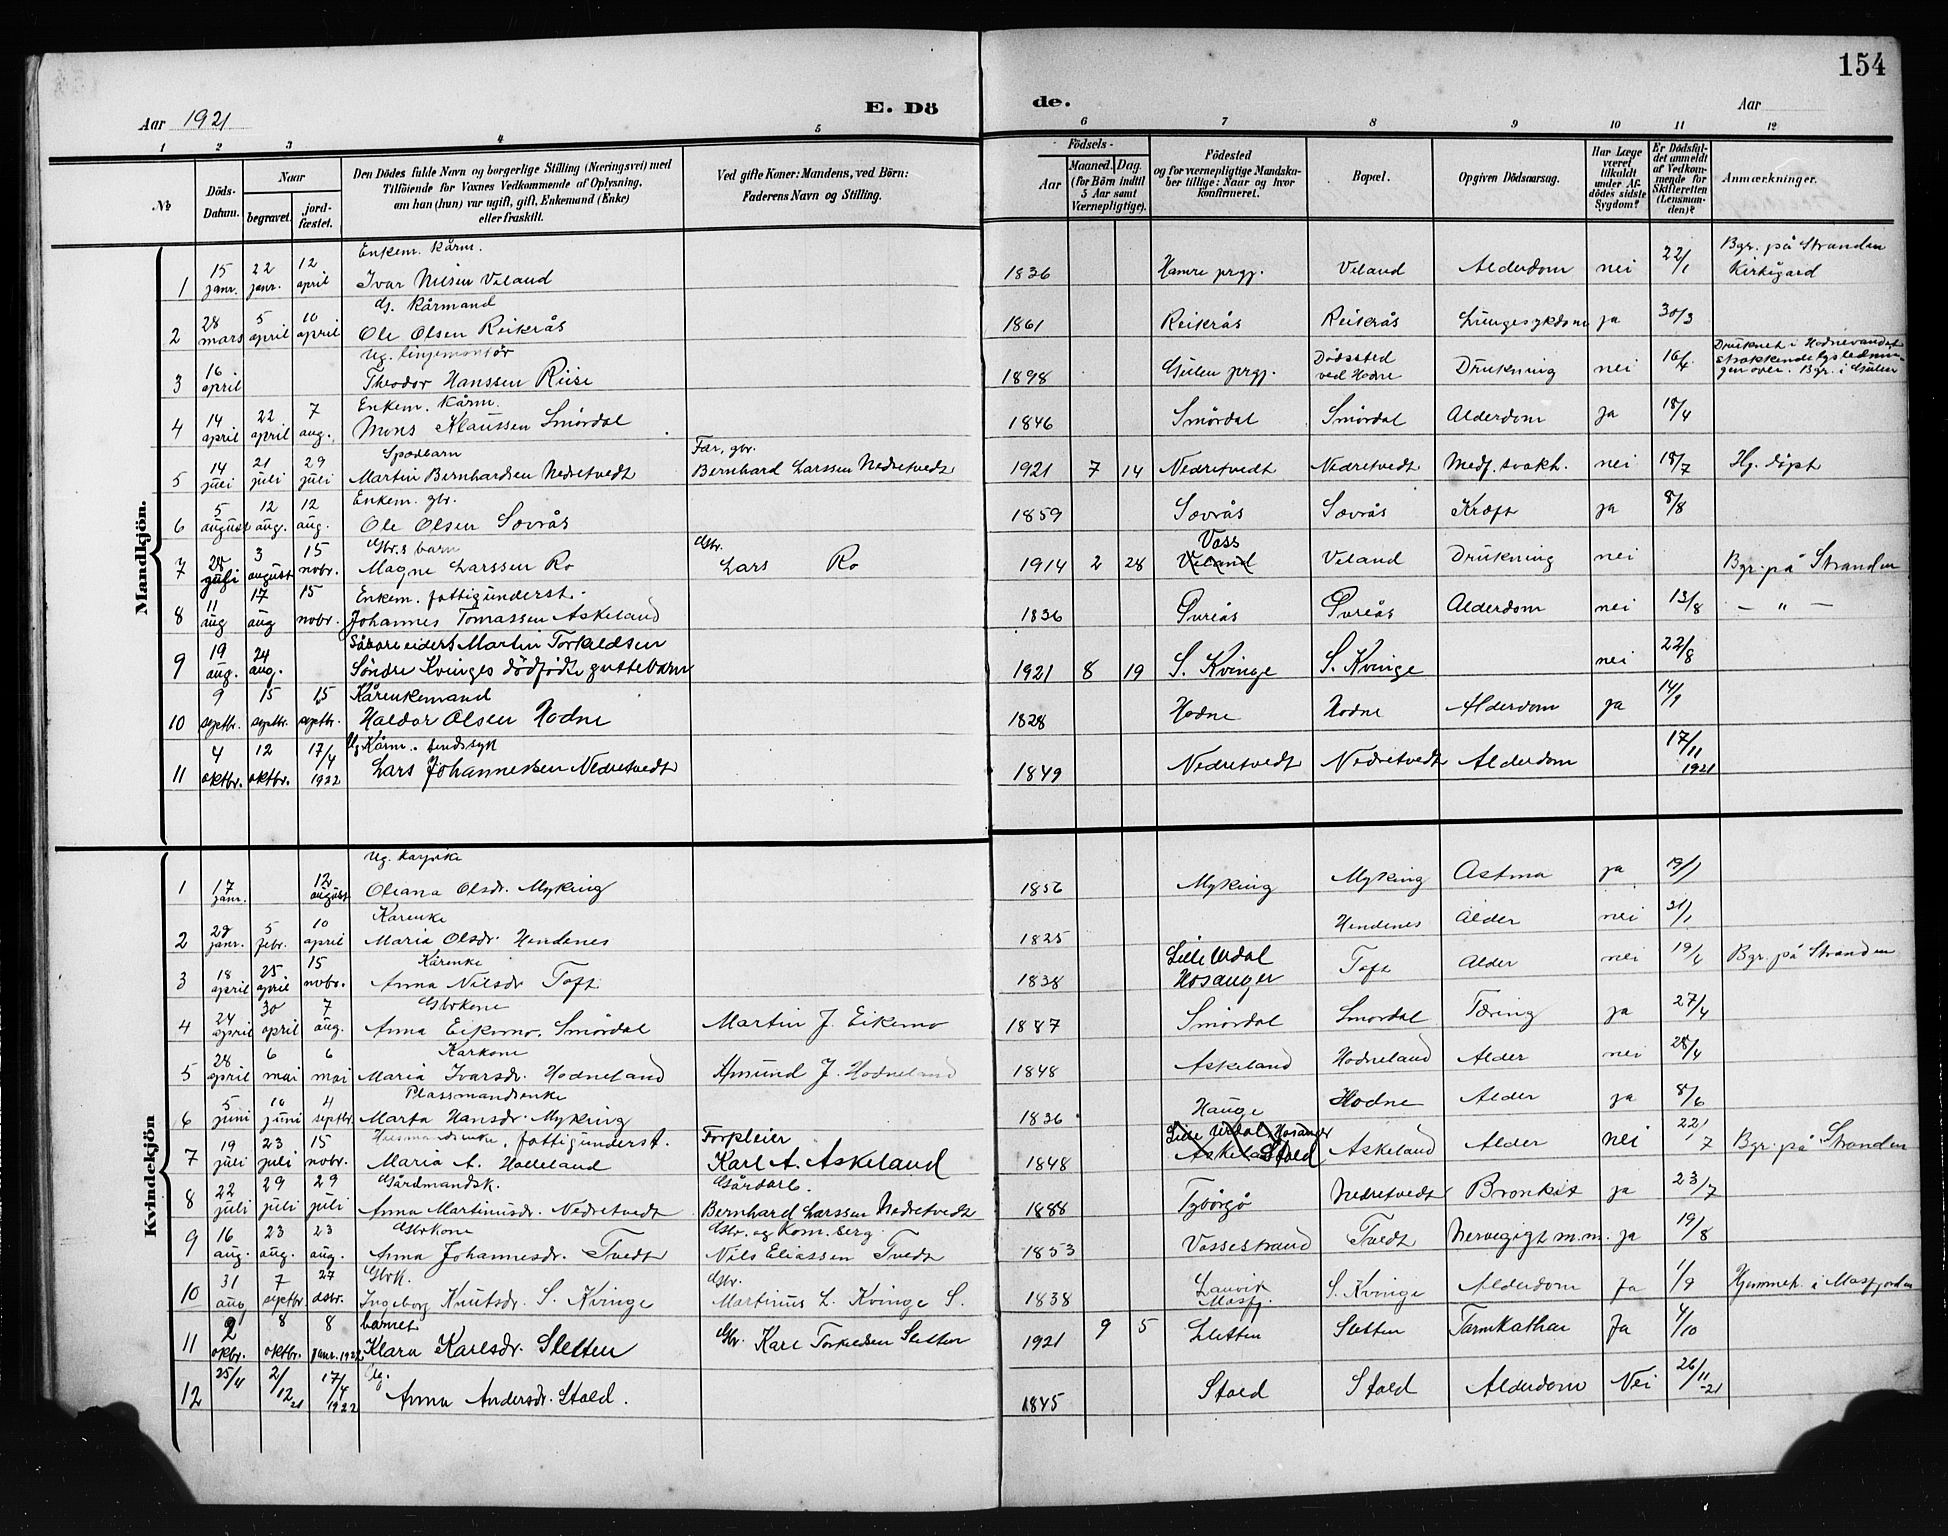 154
Aar 1921
E. Dö
de.
Aar
1 2 3 4 5 6 7 8 9 10 11 12
№
Döds-Datum.
Naar
begravet.
jordfæstet.
Den Dödes fulde Navn og borgerlige Stilling (Næringsvei) med
Tilföiende for Voxnes Vedkommende af Oplysning,
om han (hun) var ugift, gift, Enkemand (Enke)
eller fraskilt.
Ved gifte Koner: Mandens, ved Börn:
Faderens Navn og Stilling.
Födsels-
Aar
Maaned. Dag.
(for Börn indtil
5 Aar samt
Værnepligtige).
Födested
og for værnepligtige Mandskaber tillige: Naar og hvor
konfirmeret.
Bopæl.
Opgiven Dödsaarsag.
Har Læge
været
tilkaldt
under Afdödes sidste
Sygdom?
Er Dödsfaldet anmeldt
af Vedkommende for
Skifteretten
(Lensmanden)?
Anmærkninger.
Mandkjön.
1 15 janr. 22 janr. 12 april Enkem. Kårm. Ivar Nilsen Veland 1836 Hamre prgj. Veland Alderdom nei 22/1 Bgr. på Stranden Kirkegard
2 28 mars 5 april 10 april G. Kårmand Ole Olsen Reikrås 1861 Reikrås Reikrås Lungesykdom ja 30/3
3 16 april Ug. linjemontör Theodor Hanssen Riise 1898 Gulen prgj. Dödssted ved Hodne Drukning nei 16/4 Druknet i Hodnevandet Bgr. i Gulen
4 14 april 22 april 7 aug. Enkem. Kårm. Mons Klaussen Smördal 1846 Smördal Smördal Alderdom ja 18/4
5 14 juli 21 juli 29 juli Spædbarn Martin Bernhardsen Nedretvedt Far, gbr. Bernhard Larssen Nedretvedt 1921 7 14 Nedretvedt Nedretvedt Medf. svakh. nei 18/7 Hj. döpt
6 5 august 12 aug. 12 aug. Enkem. gbr. Ole Olsen Sovrås 1859 Sovrås Sovrås Kræft ja 8/8
7 28 juli 3 august 15 nobr. Gbr.s barn Magne Larssen Ro Gbr. Lars Ro 1914 2 28 Voss Veland Veland Drukning nei Bgr. på Stranden
8 11 aug 17 aug 15 nobr. Enkem. fattigunderst. Johannes Tomassen Askeland 1836 Alderdom nei 13/8 — " —
9 19 aug. 24 aug. Martin Torkeldsen Söndre Kvinges dödfödte guttebarn 1921 8 19 S. Kvinge S. Kvinge nei 22/8
10 9 septbr. 15 septbr. 15 septbr. Kårenkemand Haldor Olsen Hodne 1828 Hodne Hodne Alderdom ja 14/9
11 4 oktbr. 12 oktbr. 17/4 1922 Ug Kårm. sindssyk Lars Johannessen Nedretvedt 1849 Nedretvedt Nedretvedt Alderdom 17/11 1921
Kvindekjön
1 17 janr. 12 august Ug. Oliana Olsdr. Myking 1856 Myking Myking Astma ja 19/1
2 29 janr. 5 febr. 10 april Karenke Maria Olsdr. Hendenes 1825 Hendenes Alder nei 31/1
3 18 april 25 april 15 nobr. Kårenke Anna Nilsdr. Toft 1838 Lille Urdal Hosanger Toft Alder nei 19/4 Bgr. på Stranden
4 24 april 30 april 7 aug. Gbrkone Anna Eikemo, Smördal Martin J. Eikemo 1887 Smördal Smördal Tæring ja 27/4
5 28 april 6 mai 6 mai Karkone Maria Ivarsdr. Hodneland Amund J. Hodneland 1848 Askeland Hodneland Alder nei 28/4
6 5 juni 10 juni 4 septbr. Plassmandsenke Marta Hansdr. Myking 1836 Hauge Hodne Alder ja 8/6
7 19 juli 23 juli 15 nobr. Husmandsenke, fattigunderst. Maria A. Holleland Forpleier Karl A. Askeland 1848 Lille Urdal, Hosanger Askeland Stald Askeland Alder nei 22/7 Bgr. på Stranden
8 22 juli 29 juli 29 juli Gårdmandsk. Anna Martinusdr. Nedretvedt Gårdarb. Bernhard Larssen Nedretvedt 1888 Nedretvedt Bronkit ja 23/7
9 16 aug. 23 aug. 23 aug. Gbrkone Anna Johannesdr. Tvedt Gbr. og Kom. Nils Eliassen Tvedt 1853 Vossestrand Tvedt Nervegigt m.m. ja 19/8
10 31 aug 7 septbr 27 Gbrk. Ingeborg Knutsdr. S. Kvinge Gbr. Martinus L. Kvinge S. 1838 Lauvik Masfj. S. Kvinge Alderdom Ja 1/9 Hjemmeh. i Masfjorden
11 2 okbr. 8 oktbr. 8 janr. 1922 barnet Klara Karlsdr. Sletten Gbr. Karl Torkelsen Sletten 1921 9 5 Sletten Sletten Tarmkathar Ja 4/10
12 25/11 2/12 21 17/4 1922 Ug. Anna Andersdr. Stald. 1845 Stald Stald Alderdom Nei 26/11 -21